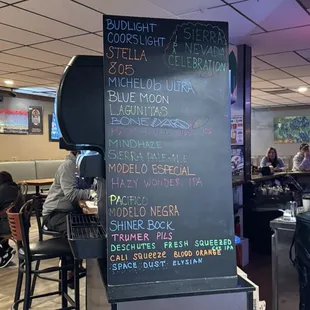 BUDLIGHT
COORSLIGHT
STELLA
805
MICHELOB ULTRA
BLUE MOON
LAGUNITAS
BONE
MINDHAZE
SIERRA PALE ALE
MODELO ESPECIAL
HAZY WONDER IPA
PACIFICO
MODELO NEGRA
SHINER BOCK
TRUMER PILS
DESCHUTES FRESH SQUEEZED IPA
CALI SQUEEZE BLOOD ORANGE
SPACE DUST ELYSIAN
SIERRA
NEVADA
CELEBRATION